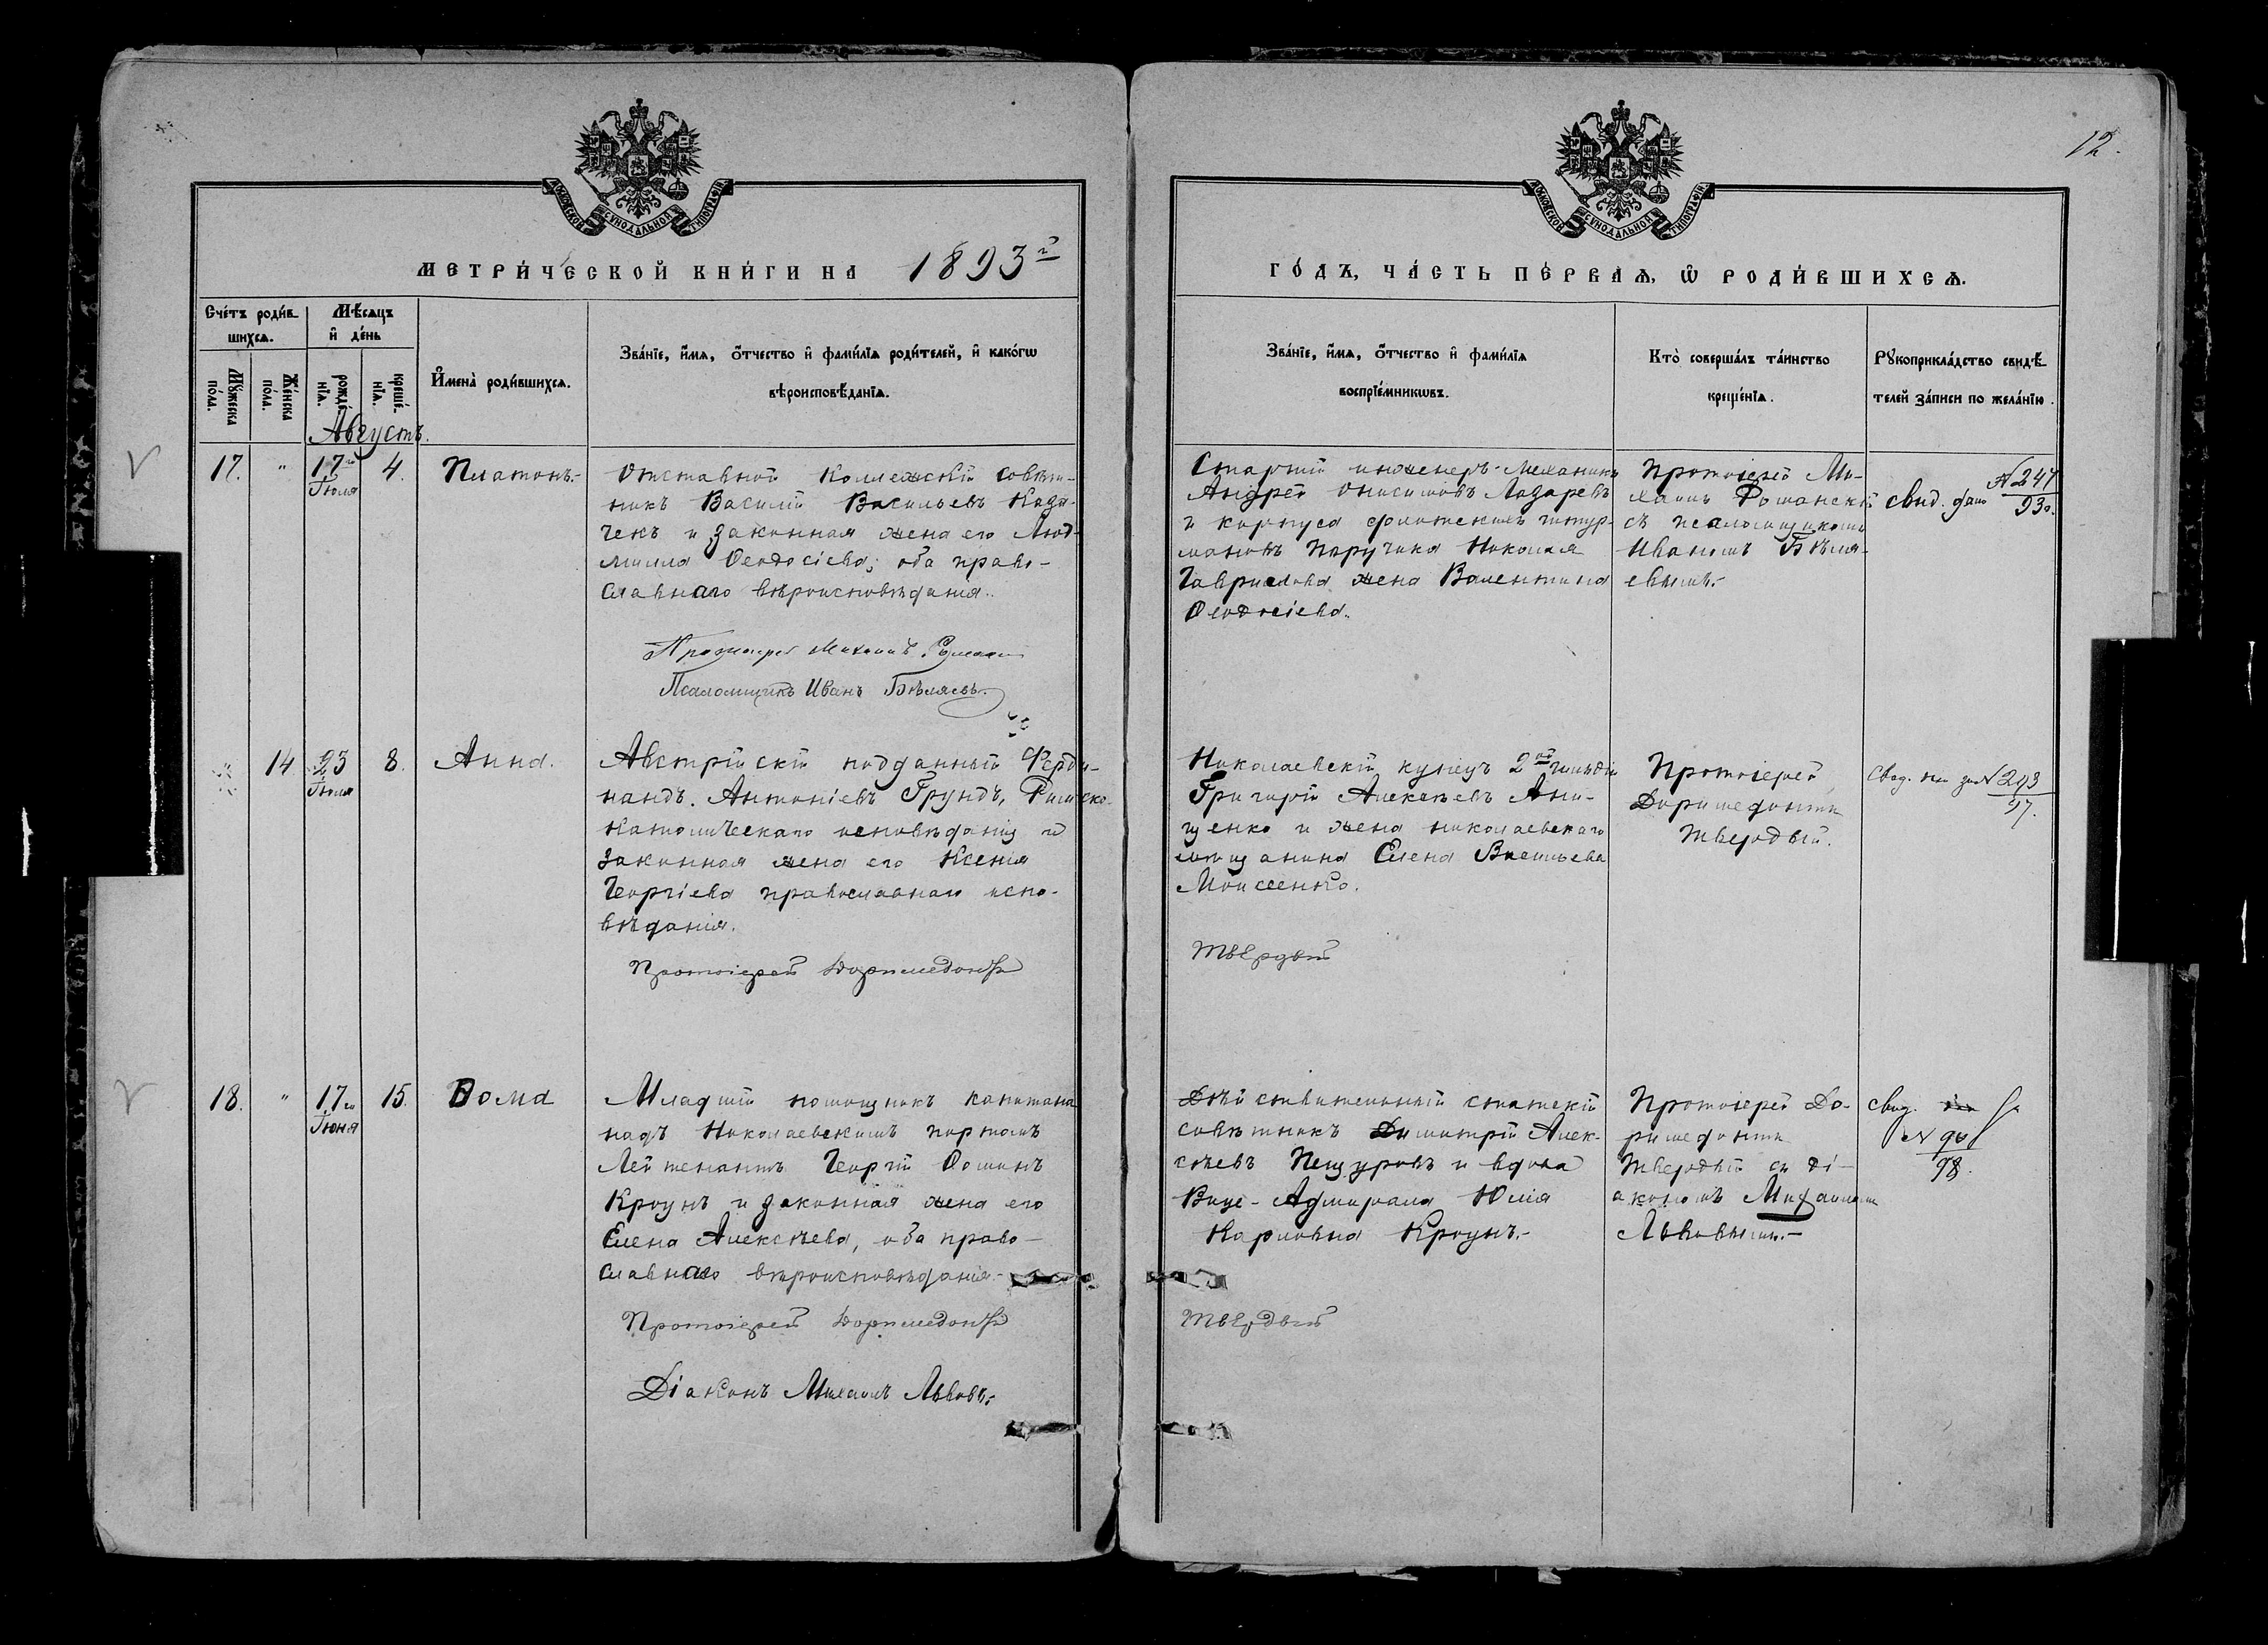 12.
МОСКОВСКОЙ СУНОДАЛЬНОЙ ТИПОГРАФІИ.
МОСКОВСКОЙ СУНОДАЛЬНОЙ ТИПОГРАФІИ.
МЕТРИ́ЧЕСКОЙ КНИ́ГИ НА 1893 г
ГО́ДЪ, ЧА́СТЬ ПЕ́РВАѦ, Ѡ҆ РОДИ́ВШИХСѦ.
Сче́тъ роди́в-
шихсѧ.
Мѣ́сѧцъ
и҆ де́нь
Му́жеска
по́ла.
Же́нска
по́ла.
рожде́-
нїѧ.
креще́-
нїѧ.
И҆мена̀ роди́вшихсѧ.
Зва́нїе, и҆́мѧ, ѻ҆́тчество и҆ фами́лїѧ роди́телей, и҆ како́гѡ
вѣроисповѣ́данїѧ.
Зва́нїе, и҆́мѧ, ѻ҆́тчество и҆ фами́лїѧ
воспрїе́мникѡвъ.
Кто̀ соверша́лъ та́инство
креще́нїѧ.
Рꙋкоприкла́дство свидѣ́-
телей за́писи по жела́нїю.
Августъ.
17. " 17го Іюля 4. Платонъ.-
Отставной Коллежскій Совѣт-
никъ Василій Васильевъ Каза-
чекъ и законная жена его Люд-
милла Ѳеодосіева; оба право-
славнаго вѣроисповѣданія.
Протоіерей Михаилъ
Псаломщикъ Иванъ Бѣляевъ.
Старшій инженеръ-механикъ
Андрей Онисимовъ Лазаревъ
и корпуса флотскихъ штур-
мановъ Поручика Николая
Гаврилова жена Валентина
Ѳеодосіева.
Протоіерей Ми-
хаилъ Романскій
съ псаломщикомъ
Иваномъ Бѣля-
евымъ.-
свид. дано № 247
93г.
" 14 23 Іюля 8. Анна.
Австрійскій подданный Ферди-
нандъ Антоніевъ Грундъ, Римско-
Католическаго исповѣданія и
законная жена его Ксенія
Георгіева православнаго испо-
вѣданія.
Протоіерей Доримедонтъ
Николаевскій купецъ 2ой гильдіи
Григорій Алексѣевъ Они-
щенко и жена николаевскаго
мѣщанина Елена Васильева
Моисеенко.
Твердый
Протоіерей
Доримедонтъ
Твердый.
Свид. за № 293
97.
18. " 17го Іюня 15. Ѳома
Младшій помощникъ капитана
надъ Николаевскимъ портомъ
Лейтенантъ Георгій Ѳоминъ
Кроунъ и законная жена его
Елена Алексѣева, оба право-
славнаго вѣроисповѣданія.-
Протоіерей Доримедонтъ
Діаконъ Михаилъ Львовъ.-
Дѣйствительный статскій
совѣтникъ Димитрій Алек-
сѣевъ Пещуровъ и вдова
Вице-Адмирала Юлія
Карловна Кроунъ.-
Твердый
Протоіерей До-
римедонтъ
Твердый съ ді-
акономъ Михаиломъ
Львовымъ.-
свид.
№ 90
98.